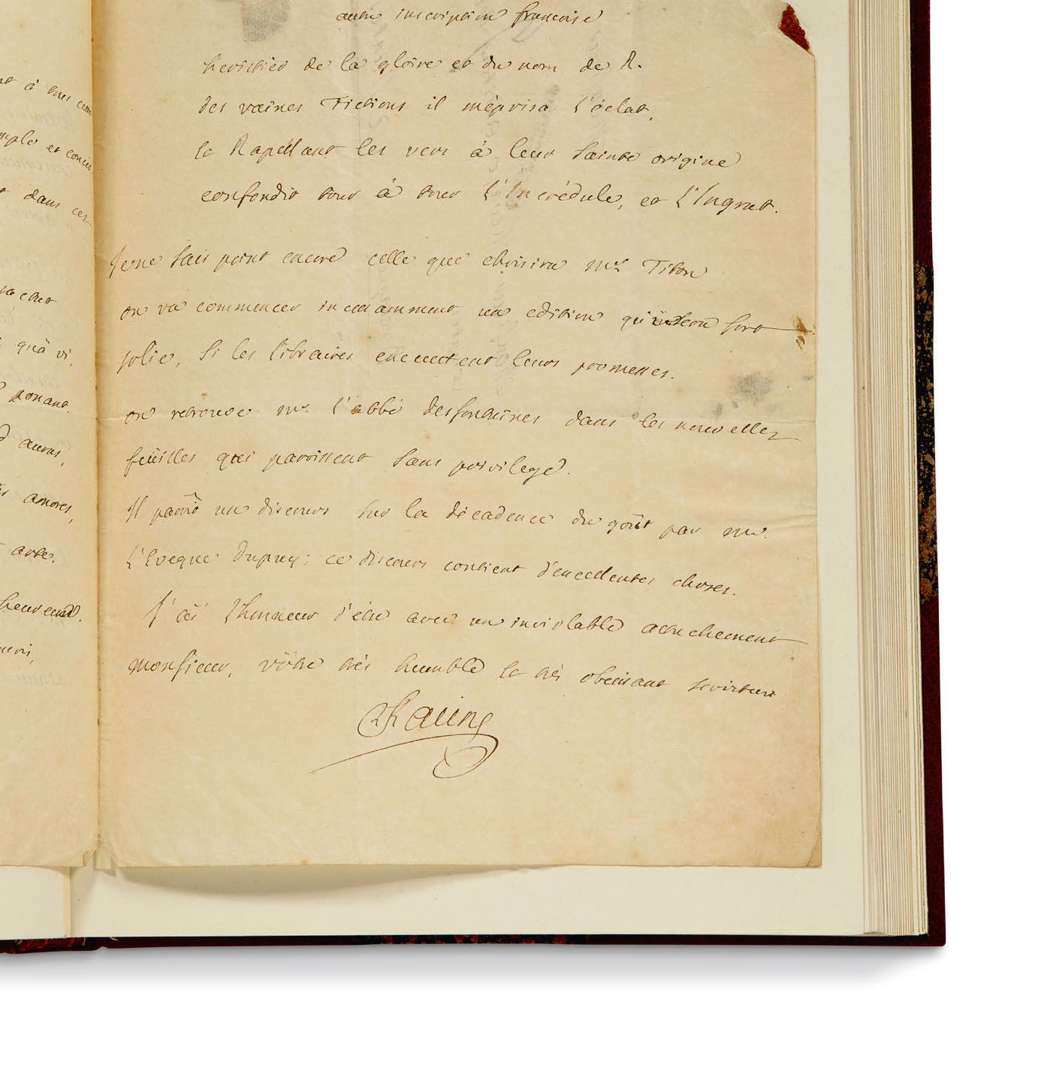 à tous
et
dans ces
qu'à vi
amores,
autre inscription francoise
heritier de la gloire et du nom de R.
des vaines Fictions il méprisa l'éclat,
et Rapellant les vers à leur sainte origine
confondit tour à tour l'Incrédule, et l'Ingrat.
Je ne sais point encore celle que choisira Mr Titon
on va commencer incessamment une edition qui sera fort
jolie, si les libraires executent leurs promesses.
on retrouve mr l'abbé desfontaines dans les nouvelles
feüilles qui paroissent sans privilege.
Il paroît un discours sur la décadence du goût par mr
l'Eveque Dupuy; ce discours contient d'excellentes choses.
J'ai l'honneur d'être avec un inviolable attachement
monsieur, vôtre très humble et très obeissant serviteur
Racine